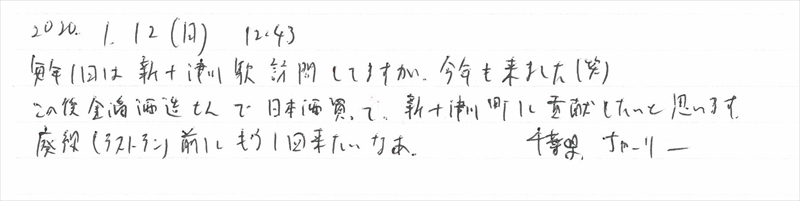 2020. 1. 12 (日) 12:43
毎年1回は新十津川駅訪問してますが、今年も来ました(笑)
この後金滴酒造さんで日本酒買って、新十津川町に貢献したいと思います。
廃線(ラストラン)前にもう1回来たいなぁ。 千葉県 ちゃーりー